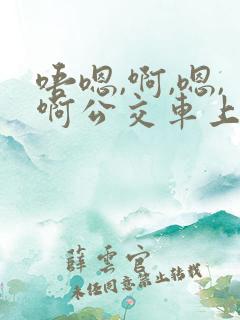 唔嗯,啊,嗯,
啊公交車上
薛雲官
未経同意禁止转载